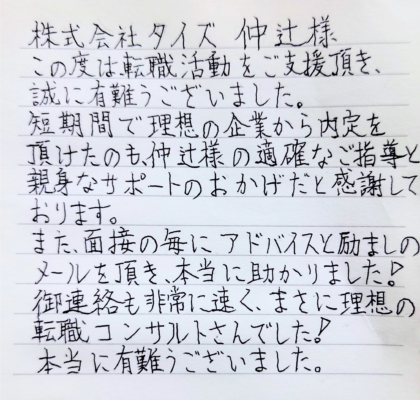 株式会社タイズ 仲辻様
この度は転職活動をご支援頂き、
誠に有難うございました。
短期間で理想の企業から内定を
頂けたのも、仲辻様の適確なご指導と
親身なサポートのおかげだと感謝して
おります。
また、面接の毎にアドバイスと励ましの
メールを頂き、本当に助かりました!
御連絡も非常に速く、まさに理想の
転職コンサルトさんでした!
本当に有難うございました。